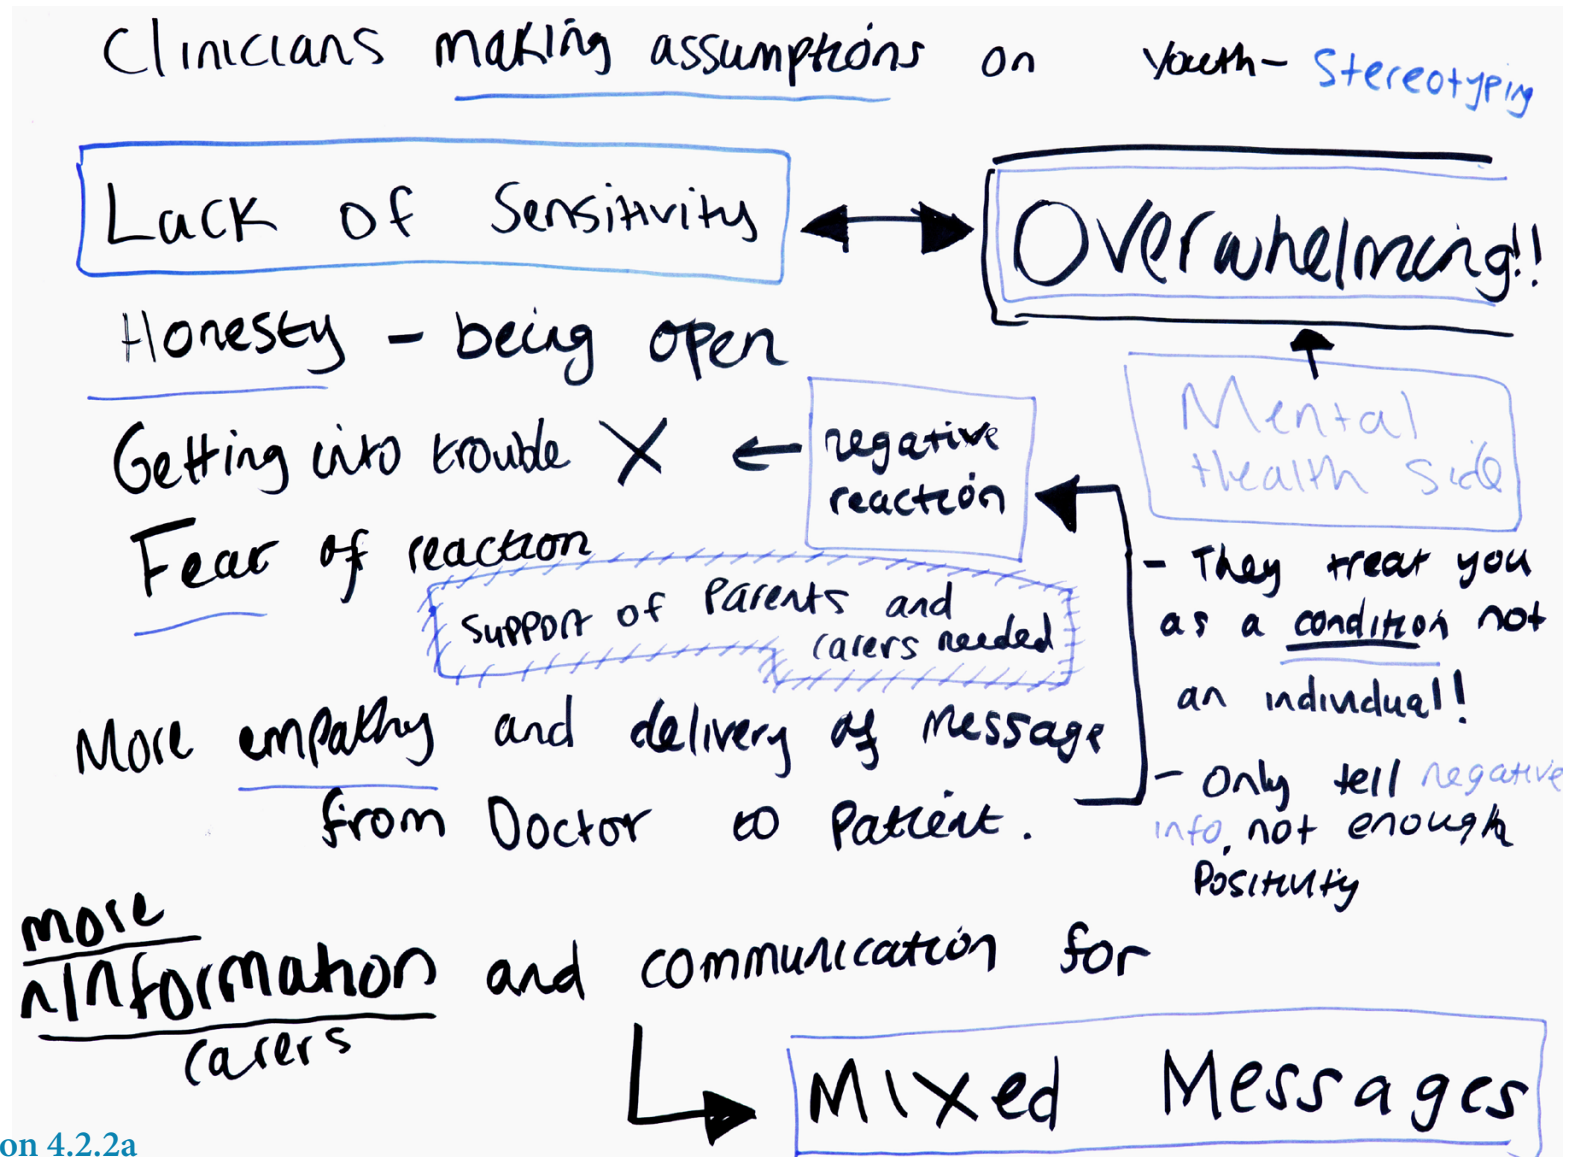 Clinicians making assumptions on Youth - Stereotyping
Lack of Sensitivity
Overwhelming!!
Honesty - being open
Getting into trouble X
negative
reaction
Mental
Health side
Fear of reaction
Support of Parents and
carers needed
- They treat you
as a condition not
an individual!
More empathy and delivery of message
from Doctor to Patient.
- Only tell negative
info, not enough
Positivity
more
information and communication for
carers
Mixed Messages
on 4.2.2a